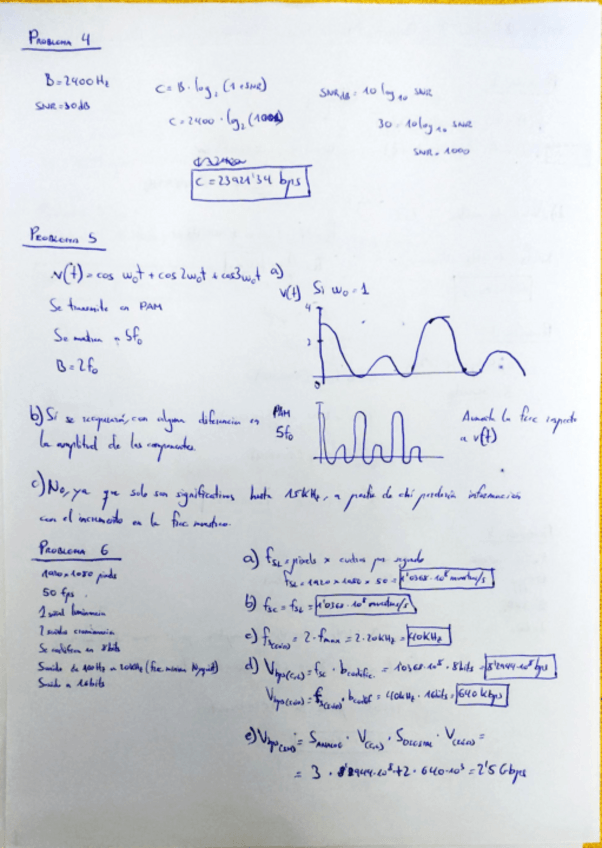 PROBLEMA 4
B = 2400 Hz
SNR = 30 dB
C = B · log₂ (1 + SNR)
C = 2400 · log₂ (1001)
SNR dB = 10 log₁₀ SNR
30 = 10 log₁₀ SNR
SNR = 1000
C = 23921'34 bps
PROBLEMA 5
v(t) = cos ω₀t + cos 2ω₀t + cos 3ω₀t
Se transmite en PAM
Se muestrea a 5f₀
B = 2f₀
a)
v(t) Si ω₀ = 1
4
2
0
b) Si se recuperará, con alguna diferencia en
la amplitud de las componentes.
PAM
5f₀
Aumenta la frec respecto
a v(t)
c) No, ya que solo son significativas hasta 15kHz, a partir de ahí perdería información
con el incremento en la frec muestreo.
PROBLEMA 6
1920 × 1080 pixels
50 fps
1 señal luminancia
2 señales crominancia
Se codifica en 8 bits
Sonido de 100Hz a 20KHz (frec mínima Nyquist)
Sonido a 16 bits
a) fSL = pixels × cuadros por segundo
fSL = 1920 × 1080 × 50 = 1'0368·10⁸ muestras/s
b) fSC = fSL = 1'0368·10⁸ muestras/s
c) = 2 · fmax = 2 · 20kHz = 40KHz
d) = fSC · bcodific. = 1'0368·10⁸ · 8bits = 8'2944·10⁸ bps
= 40kHz · 16bits = 640 kbps
e)
= 3 · 8'2944·10⁸ + 2 · 640·10³ = 2'5 Gbps